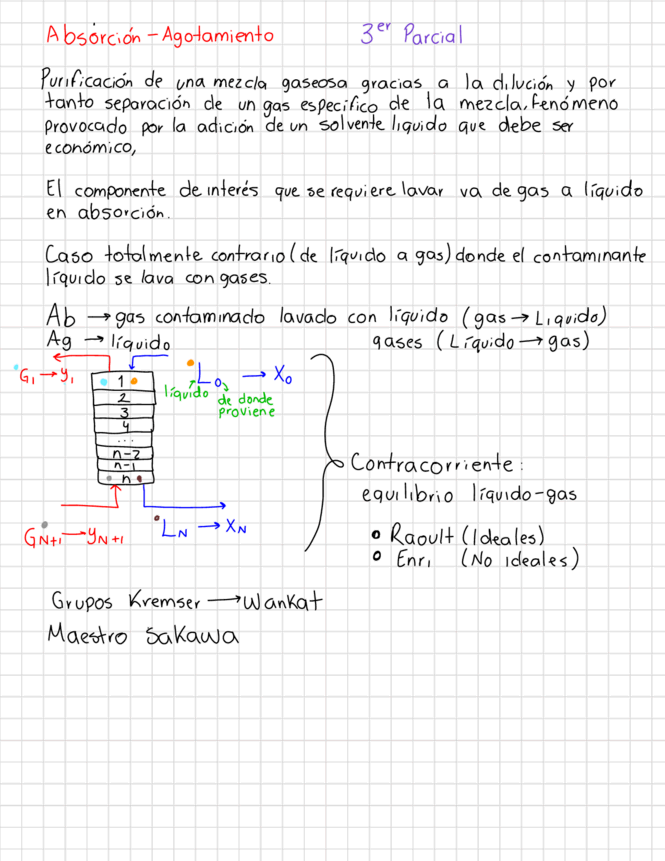 Absorción - Agotamiento 3er Parcial
Purificación de una mezcla gaseosa gracias a la dilución y por
tanto separación de un gas especifico de la mezcla, fenómeno
provocado por la adición de un solvente líquido que debe ser
económico,
El componente de interés que se requiere lavar va de gas a líquido
en absorción.
Caso totalmente contrario (de líquido a gas) donde el contaminante
líquido se lava con gases.
Ab → gas contaminado lavado con líquido (gas → Liquido)
Ag → líquido gases (Líquido → gas)
G1 → y1
L0 → X0
líquido de donde
proviene
1
2
3
4
...
n-2
n-1
n
GN+1 → yN+1
LN → XN
Contracorriente:
equilibrio líquido-gas
• Raoult (Ideales)
• Enri (No ideales)
Grupos Kremser → Wankat
Maestro Sakawa